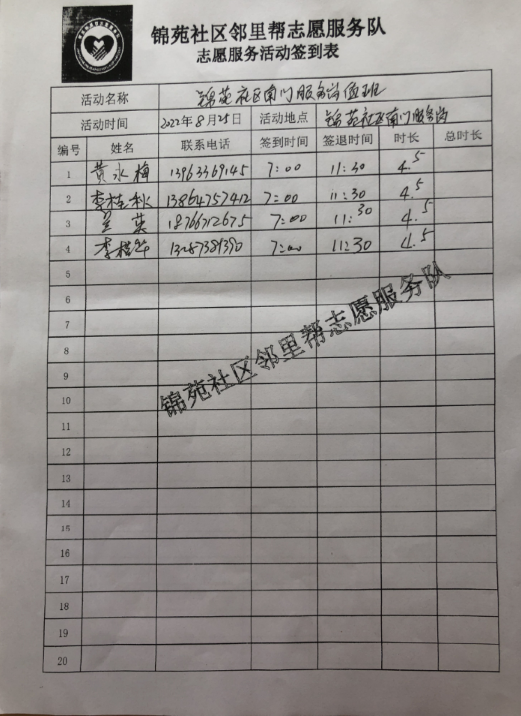 锦苑社区邻里帮志愿服务队
志愿服务活动签到表
活动名称 锦苑社区南门服务岗值班
活动时间 2022年8月25日 活动地点 锦苑社区南门服务岗
编号 姓名 联系电话 签到时间 签退时间 时长 总时长
1 黄永梅 7:00 11:30 4.5
2 李桂秋 13864757412 7:00 11:30 4.5
3 兰英 18766712675 7:00 11:30 4.5
4 李桂华 7:00 11:30 4.5
5
6
7
8
9
10
11
12
13
14
15
16
17
18
19
20
锦苑社区邻里帮志愿服务队